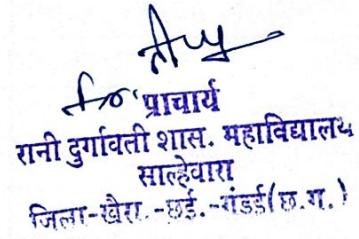 प्राचार्य
रानी दुर्गावती शास. महाविद्यालय
साल्हेवारा
जिला-खैरा.-छई.-गंडई(छ.ग.)